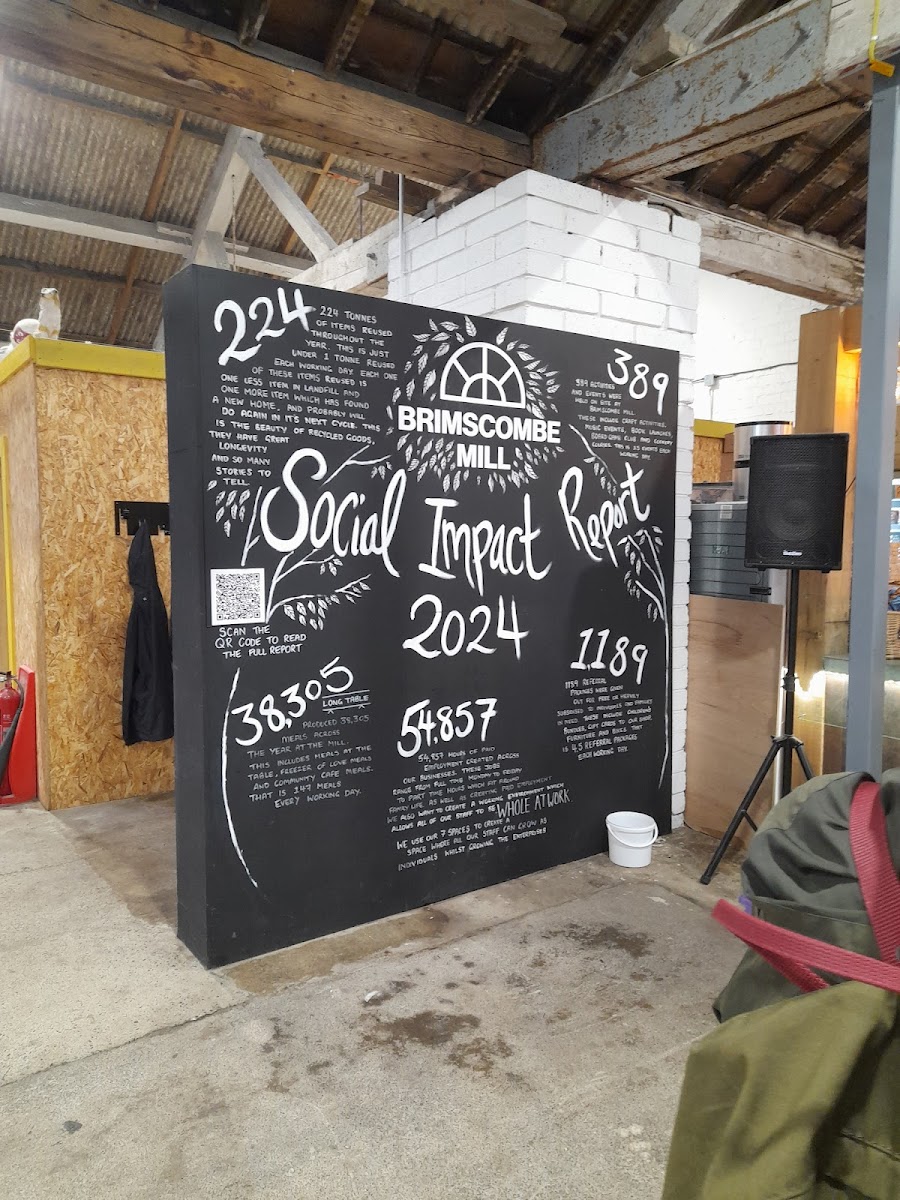 224
224 TONNES
OF ITEMS REUSED
THROUGHOUT THE
YEAR. THIS IS JUST
UNDER 1 TONNE REUSED
EACH WORKING DAY. EACH ONE
OF THESE ITEMS REUSED IS
ONE LESS ITEM IN LANDFILL AND
ONE MORE ITEM WHICH HAS FOUND
A NEW HOME, AND PROBABLY WILL
DO AGAIN IN IT'S NEXT CYCLE. THIS
IS THE BEAUTY OF RECYCLED GOODS,
THEY HAVE GREAT
LONGEVITY
AND SO MANY
STORIES TO
TELL.
BRIMSCOMBE
MILL
389
389 ACTIVITIES
AND EVENTS WERE
HELD ON SITE AT
BRIMSCOMBE MILL.
THESE INCLUDE CRAFT ACTIVITIES,
MUSIC EVENTS, BOOK LAUNCHES,
BOARD GAME CLUB AND COOKERY
COURSES. THIS IS 1.5 EVENTS EACH
WORKING DAY.
Social Impact Report
2024
SCAN THE
QR CODE TO READ
THE FULL REPORT
38,305
LONG TABLE
PRODUCED 38,305
MEALS ACROSS
THE YEAR AT THE MILL.
THIS INCLUDES MEALS AT THE
TABLE, FREEZER OF LOVE MEALS
AND COMMUNITY CAFE MEALS.
THAT IS 147 MEALS
EVERY WORKING DAY.
54,857
54,857 HOURS OF PAID
EMPLOYMENT CREATED ACROSS
OUR BUSINESSES. THESE JOBS
RANGE FROM FULL TIME MONDAY TO FRIDAY
TO PART TIME HOURS WHICH FIT AROUND
FAMILY LIFE. AS WELL AS CREATING PAID EMPLOYMENT
WE ALSO WANT TO CREATE A WORKING ENVIRONMENT WHICH
ALLOWS ALL OF OUR STAFF TO BE WHOLE AT WORK
WE USE OUR 7 SPACES TO CREATE A
SPACE WHERE ALL OUR STAFF CAN GROW AS
INDIVIDUALS WHILST GROWING THE ENTERPRISES
1,189
1189 REFERRAL
PACKAGES WERE GIVEN
OUT FOR FREE OR HEAVILY
SUBSIDISED TO INDIVIDUALS AND FAMILIES
IN NEED. THESE INCLUDE CHILDREN'S
BUNDLES, GIFT CARDS TO OUR SHOP,
FURNITURE AND BIKES. THAT
IS 4.5 REFERRAL PACKAGES
EACH WORKING DAY.